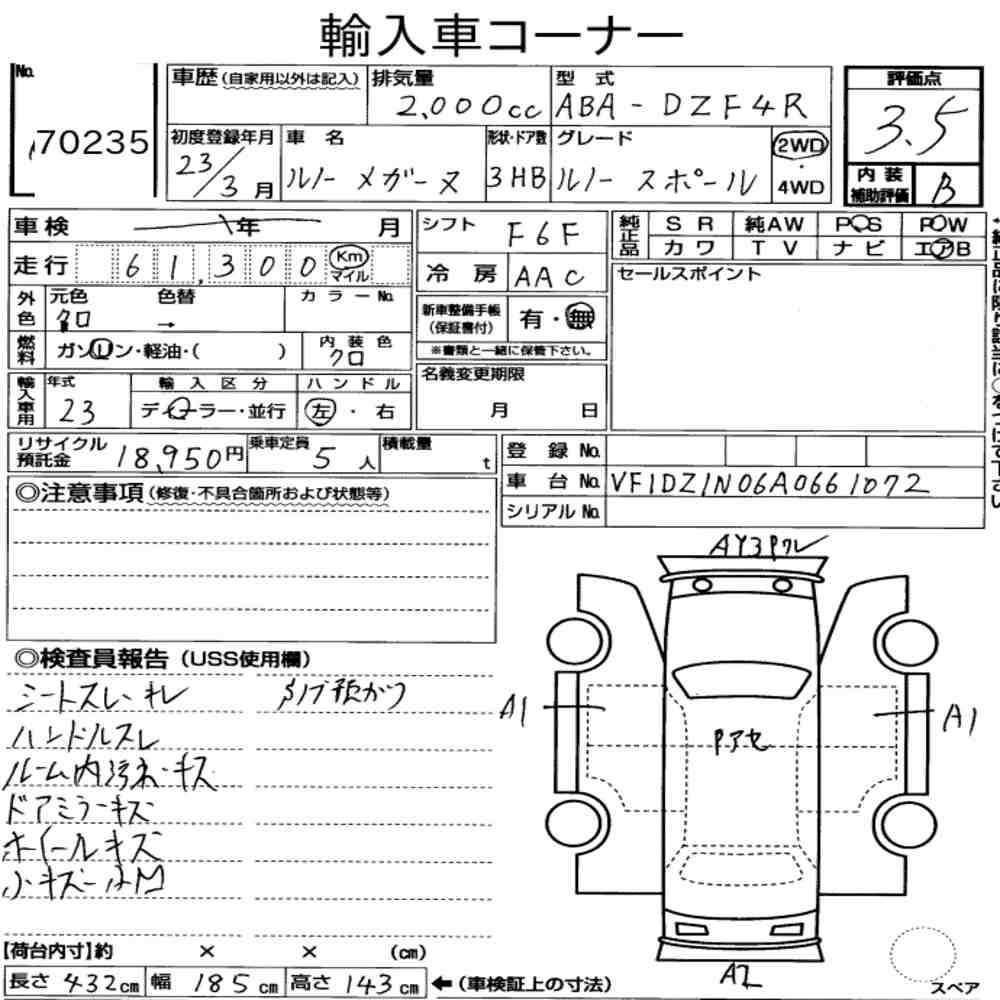 輸入車コーナー
No. 70235
車歴 (自家用以外は記入)
排気量 2,000cc
型式 ABA - DZF4R
評価点 3.5
初度登録年月 23/3月
車名 ルノー メガーヌ
形状・ドア数 3HB
グレード ルノー スポール
2WD・4WD
内装補助評価 B
車検 年 月
シフト F6F
純正品 SR 純AW PS PW
カワ TV ナビ エアB
走行 61,300 Km マイル
冷房 AAC
セールスポイント
外色 元色 クロ 色替 → カラーNo.
新車整備手帳(保証書付) 有・無
※書類と一緒に保管下さい。
燃料 ガソリン・軽油・( )
内装色 クロ
名義変更期限 月 日
輸入車用 年式 23
輸入区分 ディーラー・並行
ハンドル 左・右
リサイクル預託金 18,950円
乗車定員 5人
積載量 t
登録No.
車台No. VF1DZ1N06A0661072
シリアルNo.
◎注意事項(修復・不具合箇所および状態等)
AY3Pワレ
◎検査員報告(USS使用欄)
シートスレ・キレ
ハンドルスレ
ルーム内汚れ・キズ
ドアミラーキズ
ホイールキズ
小キズ
A1
A1
Pアセ
A2
【荷台内寸】約 × × (cm)
長さ 432cm 幅 185cm 高さ 143cm ←(車検証上の寸法)
スペア